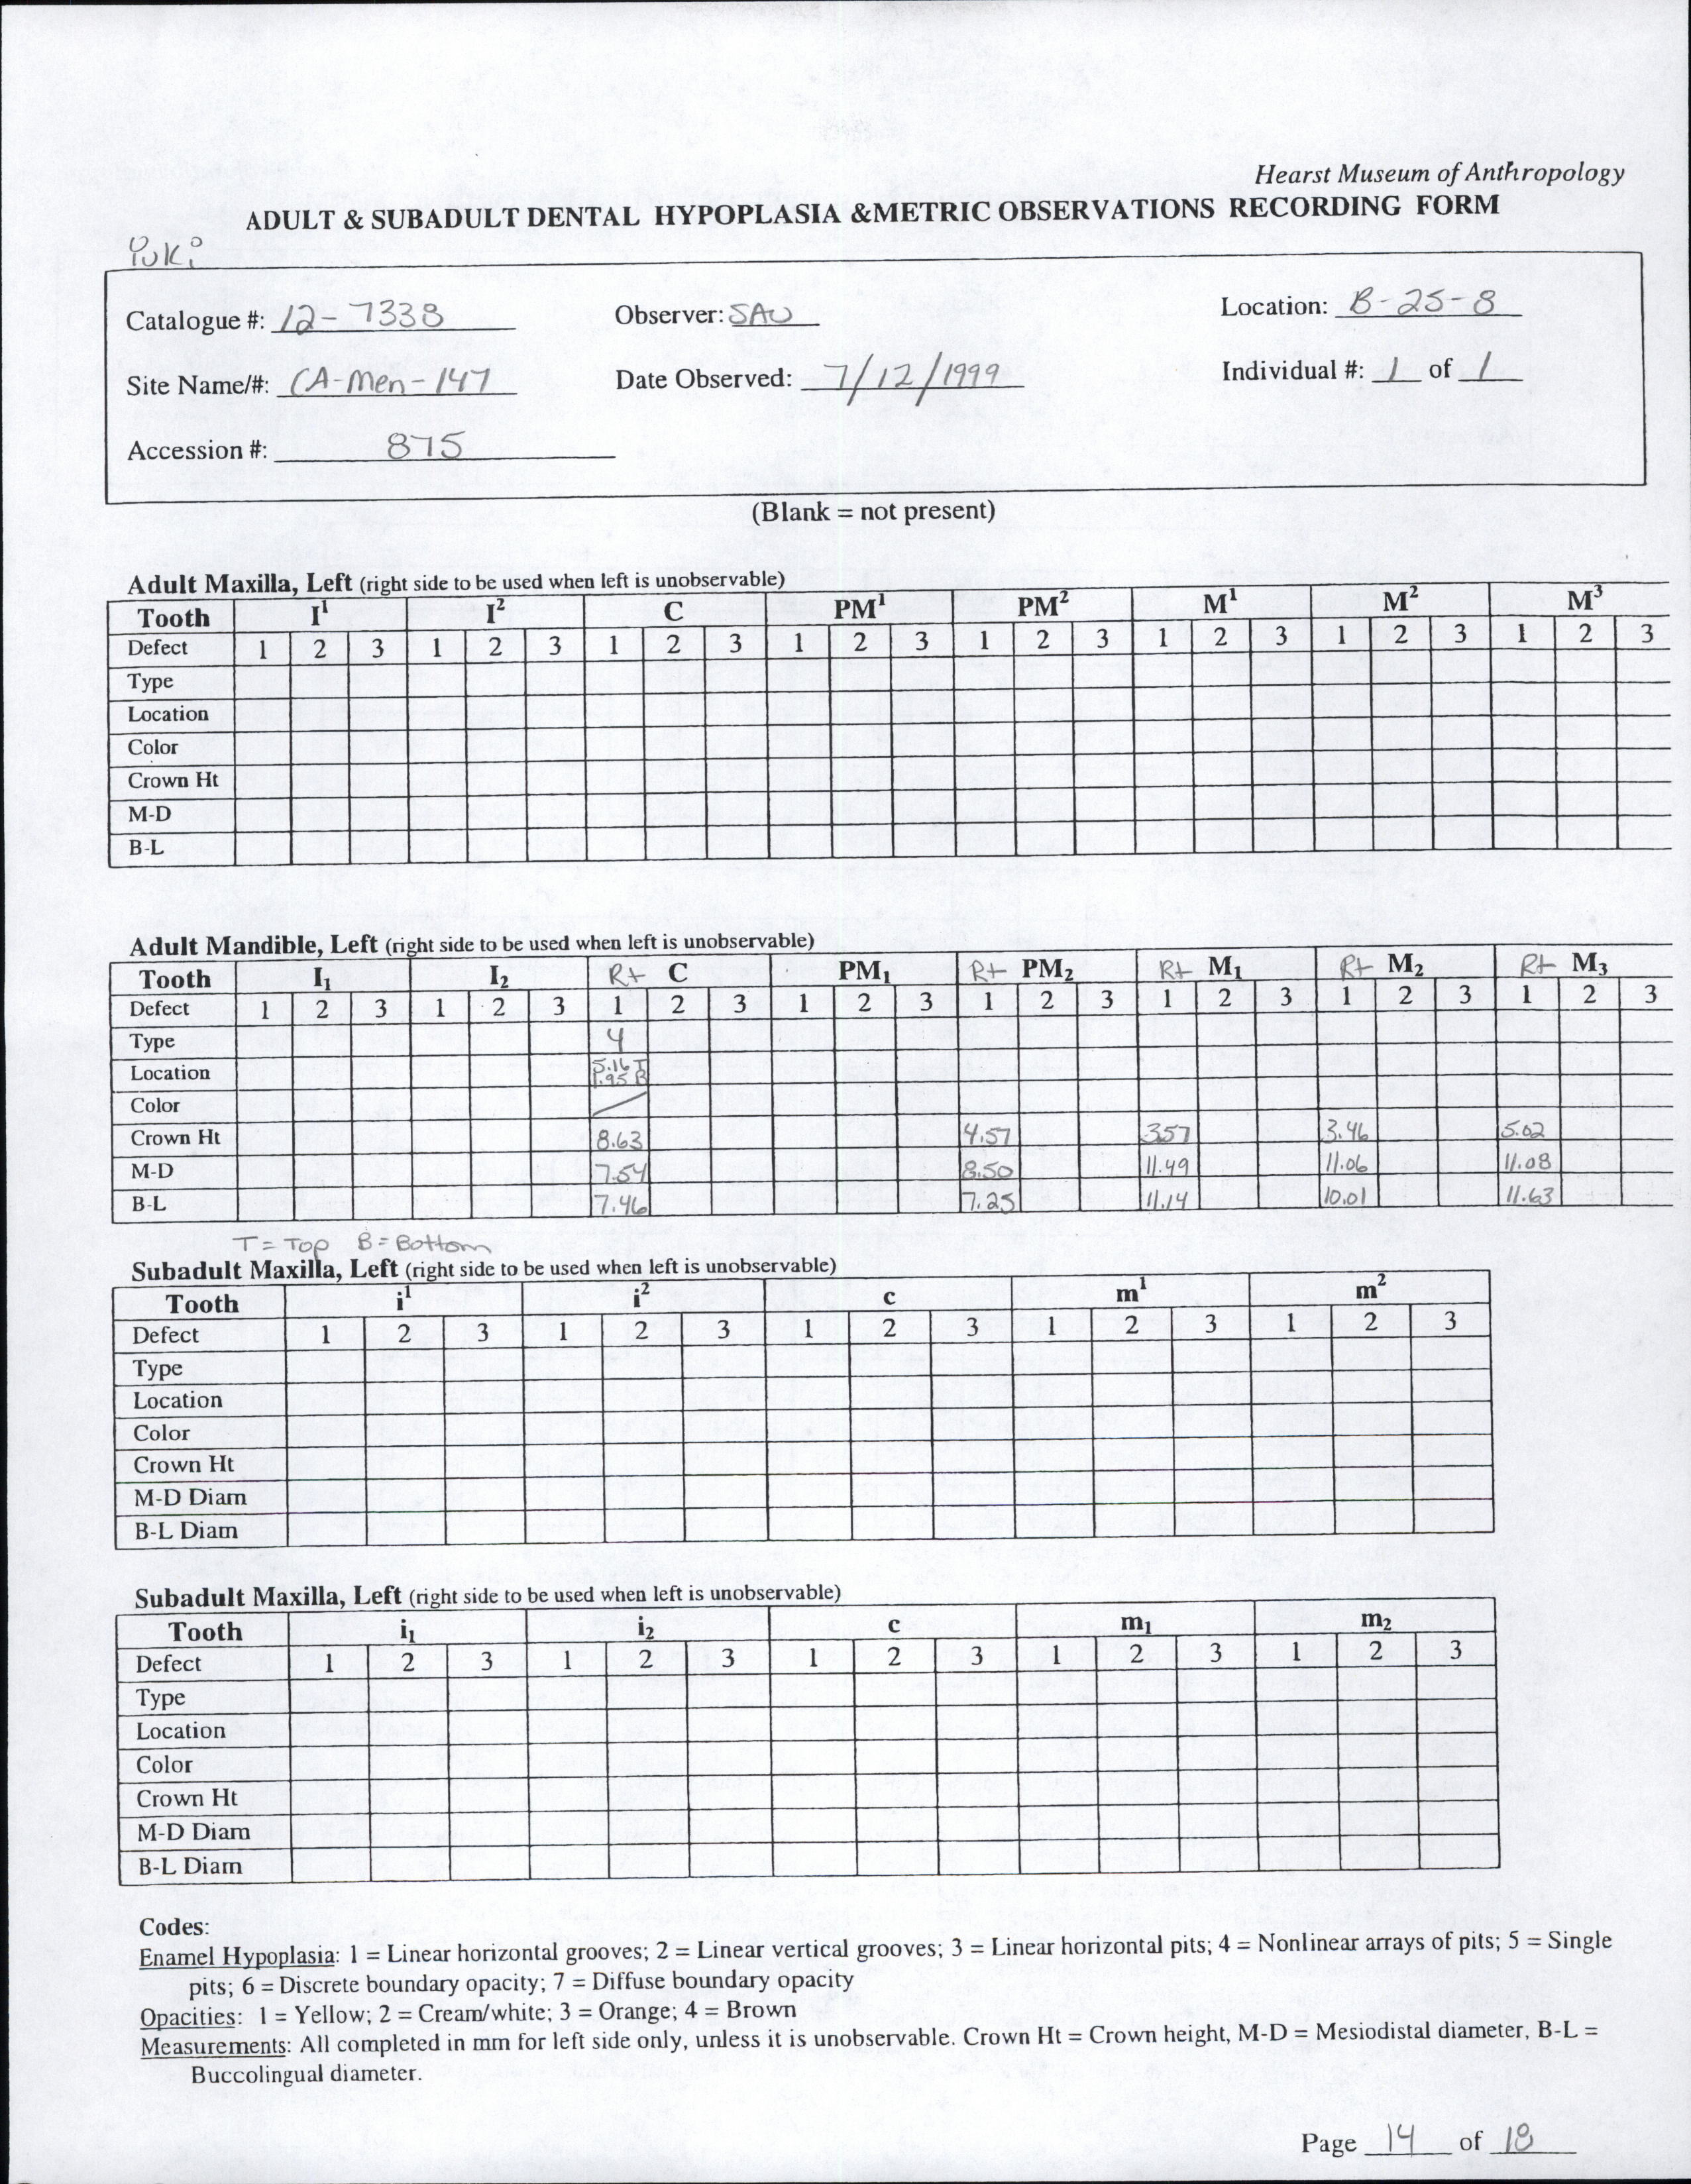 Hearst Museum of Anthropology
ADULT & SUBADULT DENTAL HYPOPLASIA &METRIC OBSERVATIONS RECORDING FORM
Yuki
Catalogue #: 12-7338 Observer: SAW Location: B-25-8
Site Name/#: CA-Men-147 Date Observed: 7/12/1999 Individual #: 1 of 1
Accession #: 875
(Blank = not present)
Adult Maxilla, Left (right side to be used when left is unobservable)
Tooth I¹ I² C PM¹ PM² M¹ M² M³
Defect 1 2 3 1 2 3 1 2 3 1 2 3 1 2 3 1 2 3 1 2 3 1 2 3
Type
Location
Color
Crown Ht
M-D
B-L
Adult Mandible, Left (right side to be used when left is unobservable)
Tooth I₁ I₂ Rt C PM₁ Rt PM₂ Rt M₁ Rt M₂ Rt M₃
Defect 1 2 3 1 2 3 1 2 3 1 2 3 1 2 3 1 2 3 1 2 3 1 2 3
Type 4
Location 5.16 T
1.95 B
Color
Crown Ht 8.63 4.57 3.57 3.46 5.02
M-D 7.54 8.50 11.49 11.06 11.08
B-L 7.46 7.25 11.14 10.01 11.63
T = Top B = Bottom
Subadult Maxilla, Left (right side to be used when left is unobservable)
Tooth i¹ i² c m¹ m²
Defect 1 2 3 1 2 3 1 2 3 1 2 3 1 2 3
Type
Location
Color
Crown Ht
M-D Diam
B-L Diam
Subadult Maxilla, Left (right side to be used when left is unobservable)
Tooth i₁ i₂ c m₁ m₂
Defect 1 2 3 1 2 3 1 2 3 1 2 3 1 2 3
Type
Location
Color
Crown Ht
M-D Diam
B-L Diam
Codes:
Enamel Hypoplasia: 1 = Linear horizontal grooves; 2 = Linear vertical grooves; 3 = Linear horizontal pits; 4 = Nonlinear arrays of pits; 5 = Single
pits; 6 = Discrete boundary opacity; 7 = Diffuse boundary opacity
Opacities: 1 = Yellow; 2 = Cream/white; 3 = Orange; 4 = Brown
Measurements: All completed in mm for left side only, unless it is unobservable. Crown Ht = Crown height, M-D = Mesiodistal diameter, B-L =
Buccolingual diameter.
Page 14 of 18